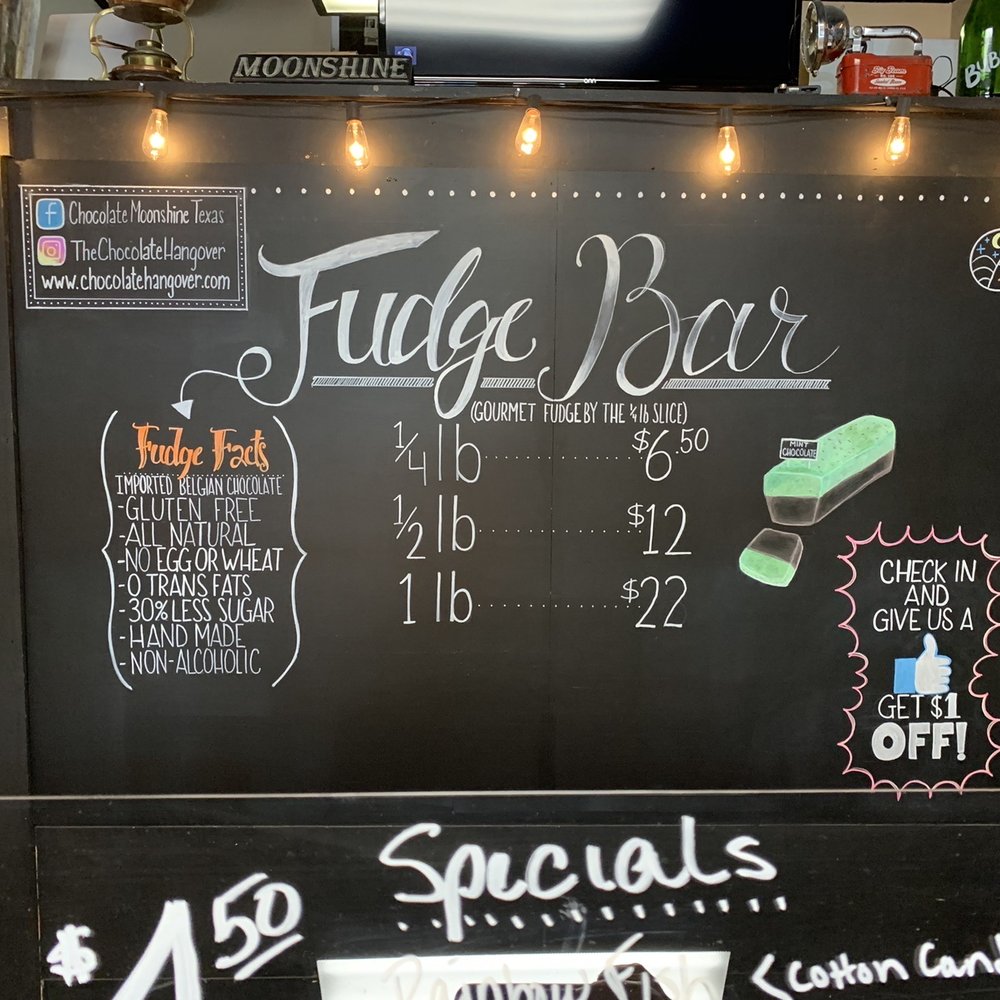 MOONSHINE
f Chocolate Moonshine Texas
TheChocolateHangover
www.chocolatehangover.com
Fudge Bar
(GOURMET FUDGE BY THE 1/4 lb SLICE)
1/4 lb $6.50
1/2 lb $12
1 lb $22
Fudge Facts
IMPORTED BELGIAN CHOCOLATE
-GLUTEN FREE
-ALL NATURAL
-NO EGG OR WHEAT
-0 TRANS FATS
-30% LESS SUGAR
-HAND MADE
-NON-ALCOHOLIC
MINT
CHOCOLATE
CHECK IN
AND
GIVE US A
GET $1
OFF!
Specials
$ 50
Rainbow Fish
<Cotton Can